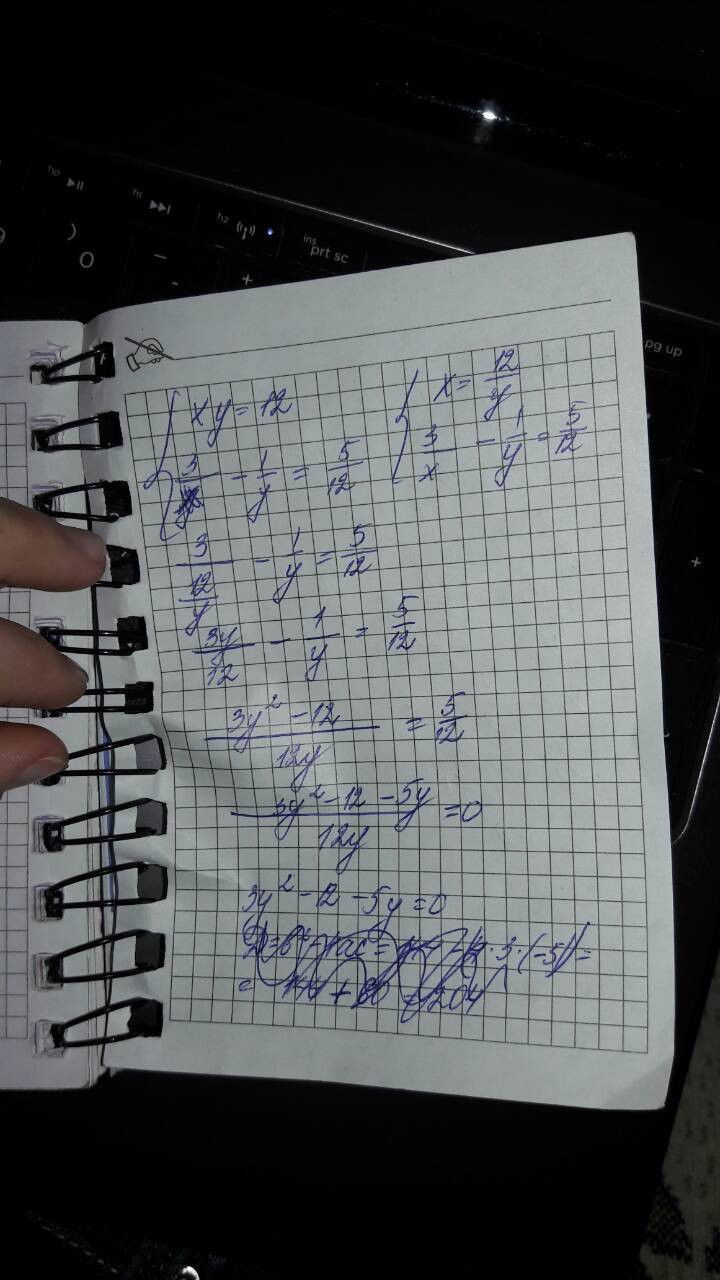 f10 ▶|| f11 ▶▶| f12
ins prt sc
) 0 _ - +
pg up
+
xy = 12
x = 12/y
3/x - 1/y = 5/12
3/x - 1/y = 5/12
3/(12/y) - 1/y = 5/12
3y/12 - 1/y = 5/12
(3y² - 12)/12y = 5/12
(3y² - 12 - 5y)/12y = 0
3y² - 12 - 5y = 0
D = b² - 4ac =
· 3 · (-5) =
= 144 + 60 = 204